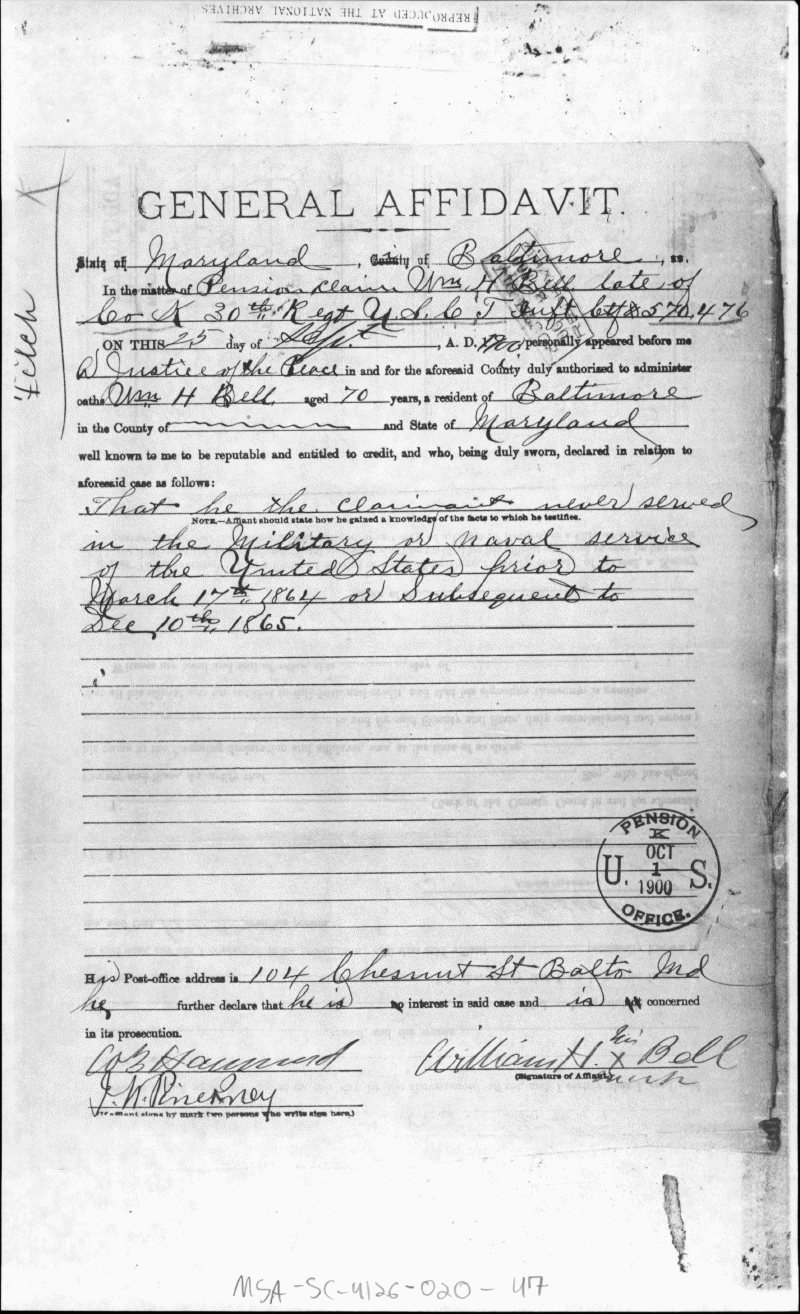 REPRODUCED AT THE NATIONAL ARCHIVES
K
Fitch
GENERAL AFFIDAVIT.
State of Maryland, County of Baltimore, ss.
In the matter of Pension claim Wm H Bell late of
Co K 30th Regt U.S.C.T Inft. Ctf 570.476
ON THIS 25 day of Sept., A. D. 1900 personally appeared before me
a Justice of the Peace in and for the aforesaid County duly authorized to administer
oaths Wm H Bell, aged 70 years, a resident of Baltimore
in the County of and State of Maryland
well known to me to be reputable and entitled to credit, and who, being duly sworn, declared in relation to
aforesaid case as follows:
That he the claimant never served
NOTE.—Affiant should state how he gained a knowledge of the facts to which he testifies.
in the Military or naval service
of the United States prior to
March 17th, 1864 or Subsequent to
Dec, 10th, 1865.
PENSION
K
OCT
U. 1 S.
1900
OFFICE.
His Post-office address is 104 Chesnut St Balto Md
he further declare that he is no interest in said case and is not concerned
in its prosecution.
William H. his x Bell
mark
(Signature of Affiant.)
J. W. Pinckney
(If affiant signs by mark two persons who write sign here.)
MSA-SC-4126-020-47